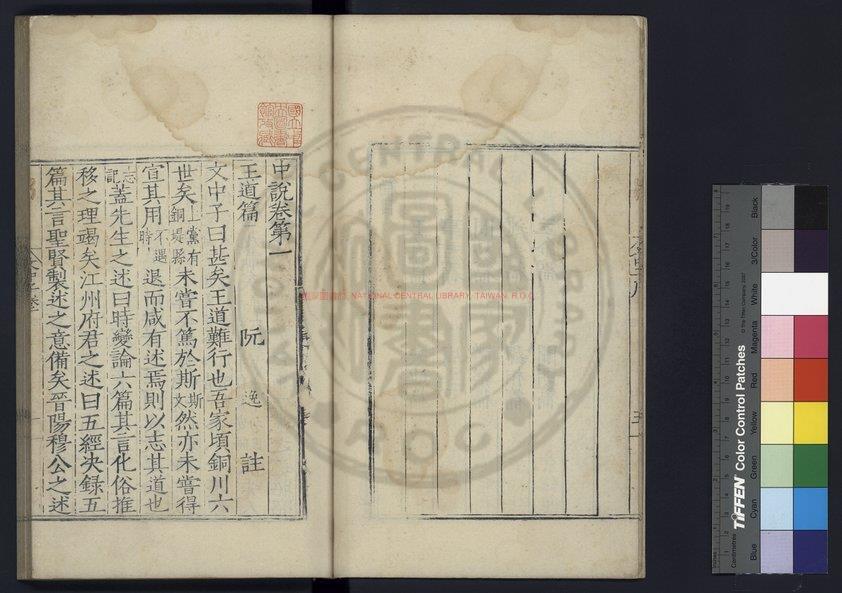 中說卷第一
王道篇 阮逸註
文中子曰甚矣王道難行也吾家頃銅川六
世矣上黨有銅堤縣未嘗不篤於斯斯文然亦未嘗得
宣其用不遇時退而咸有述焉則以志其道也
志記蓋先生之述曰時變論六篇其言化俗推
移之理竭矣江州府君之述曰五經决録五
篇其言聖賢製述之意備矣晉陽穆公之述
國家圖書館 NATIONAL CENTRAL LIBRARY, TAIWAN, R.O.C.
NATIONAL CENTRAL LIBRARY
R.O.C
TIFFEN Color Control Patches
© The Tiffen Company, 2007
Centimetres
Blue
Cyan
Green
Yellow
Red
Magenta
White
3/Color
Black